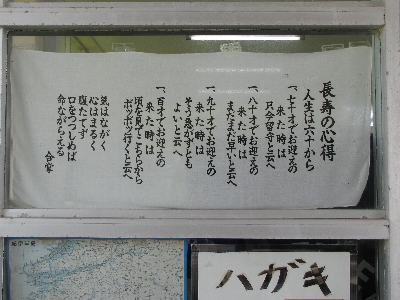 長寿の心得
人生は六十から
一、七十才でお迎えの
来た時は
只今留守と云へ
一、八十才でお迎えの
来た時は
まだまだ早いと云へ
一、九十才でお迎えの
来た時は
そう急がずとも
よいと云へ
一、百才でお迎えの
来た時は
頃を見てこちらから
ボツボツ行くと云へ
気はながく
心はまるく
腹たてず
口をつつしめば
命ながらえる
合掌
ハガキ